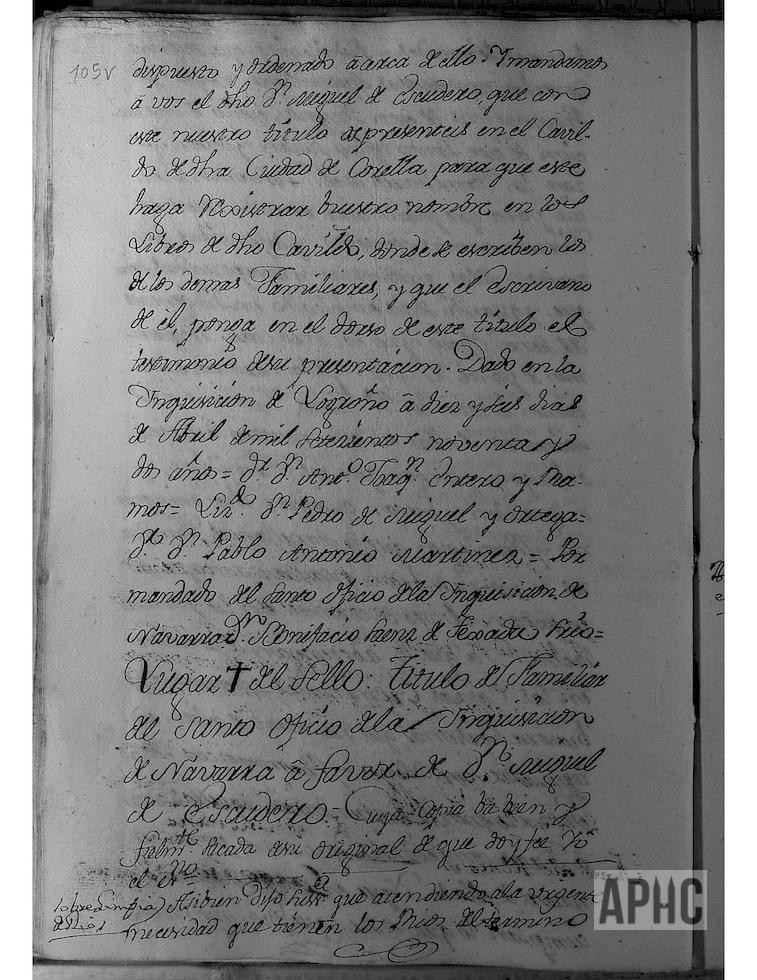 105v
dispuesto y ordenado â acerca de ello. Y mandamos
â vos el dho Dn. Miguel de Escudero, que con
este nuestro titulo os presenteis en el Cavil-
do de dha Ciudad de Corella para que este
haga Rexistrar buestro nombre en los
Libros de dho Cavildo, donde se escriben los
de los demas Familiares, y que el Escrivano
de él, ponga en el dorso de este titulo el
testimonio de su presentacion. Dado en la
Inquisicion de Logroño â diez y seis dias
de Abril de mil setezientos noventa y
dos años = Dr. Dn. Anto. Joaqn. Entero y Ra-
mos = Lizdo. Dn. Pedro de Miguel y Ortega =
Dn. Pablo Antonio Martinez = Por
mandado del Santo Oficio de la Inquisicion de
Navarra Dn. Bonifacio Saenz de Texada Srio =
Lugar † del Sello: Titulo de Familiar
del Santo Oficio de la Inquisicion
de Navarra â favor de Dn. Miguel
de Escudero = Cuya Copia ba bien y
fielmte. sacada de su original de que doy fee Yo
el esno
Asibien dijo que atendiendo ala urgente
sobre Limpia
de Rios
necesidad que tienen los Rios del termino
APHC